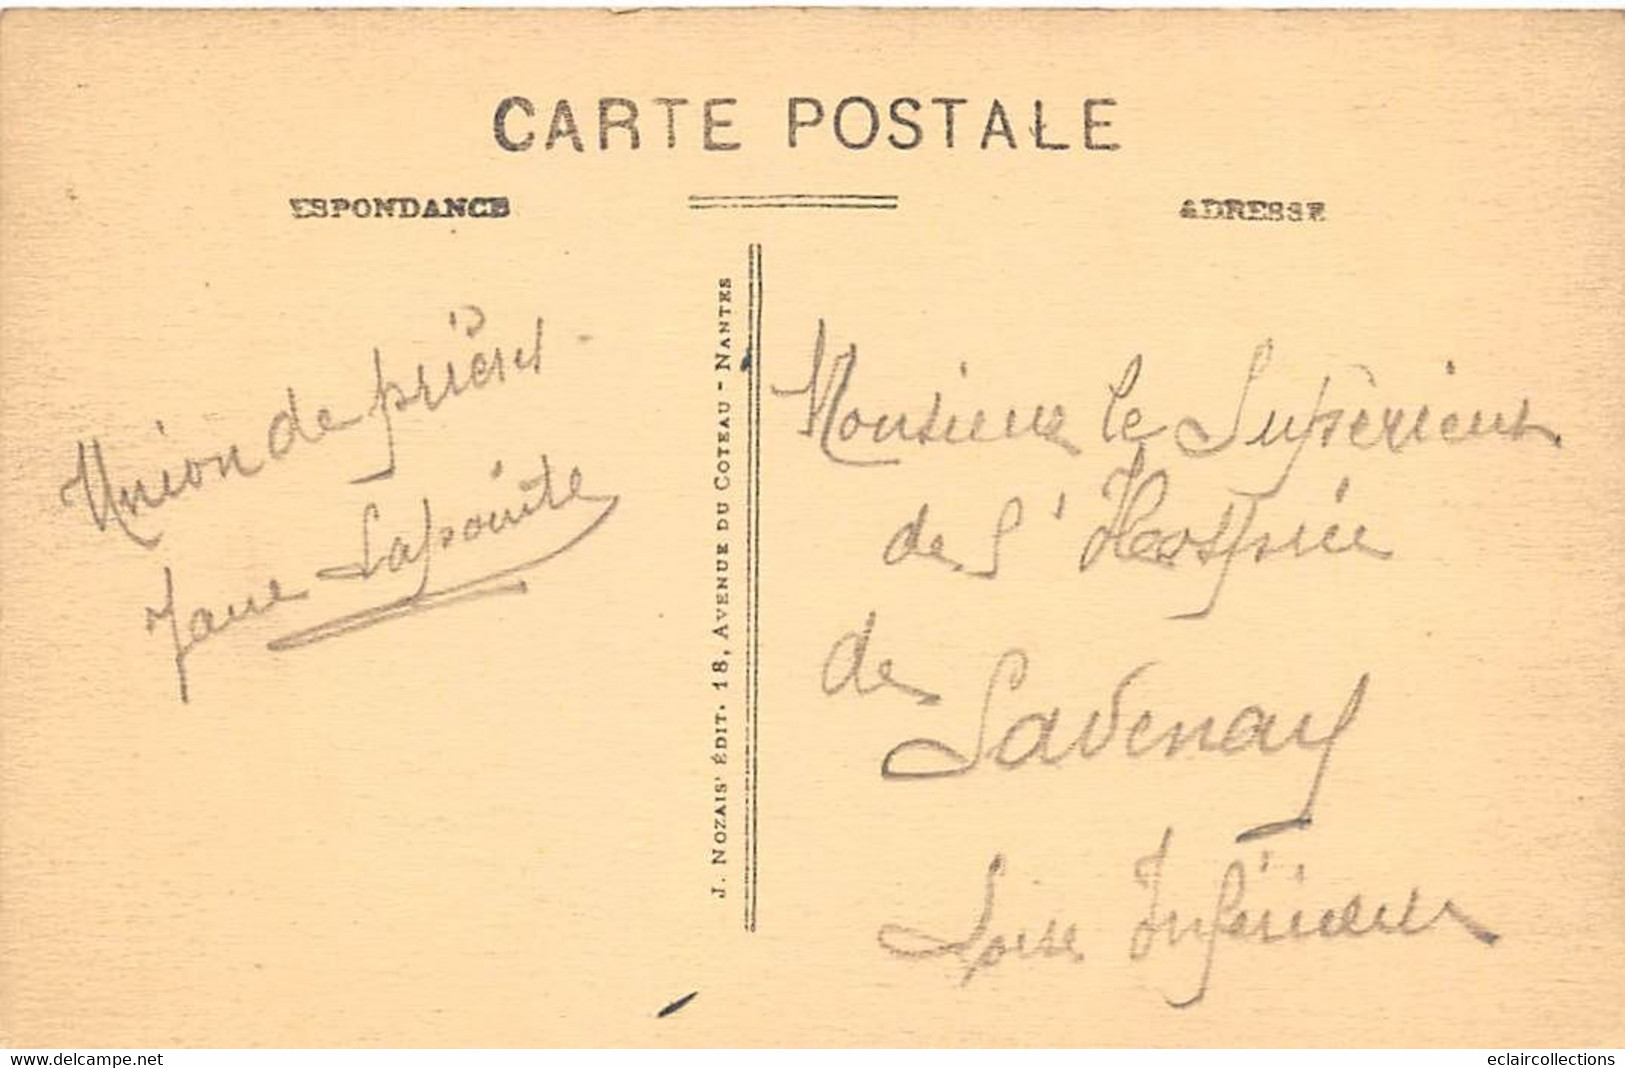 CARTE POSTALE
ESPONDANCE
ADRESSE
Union de prières
Lapointe
J. NOZAIS' ÉDIT. 18, AVENUE DU COTEAU - NANTES
Monsieur le Supérieur
de l'Hospice
de
Savenay
Loire Inférieure
www.delcampe.net
eclaircollections